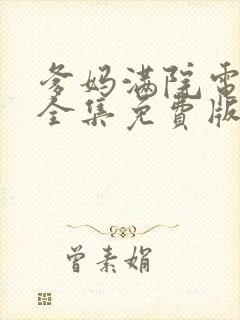 爹妈满院电
全集免费版
曾素娟